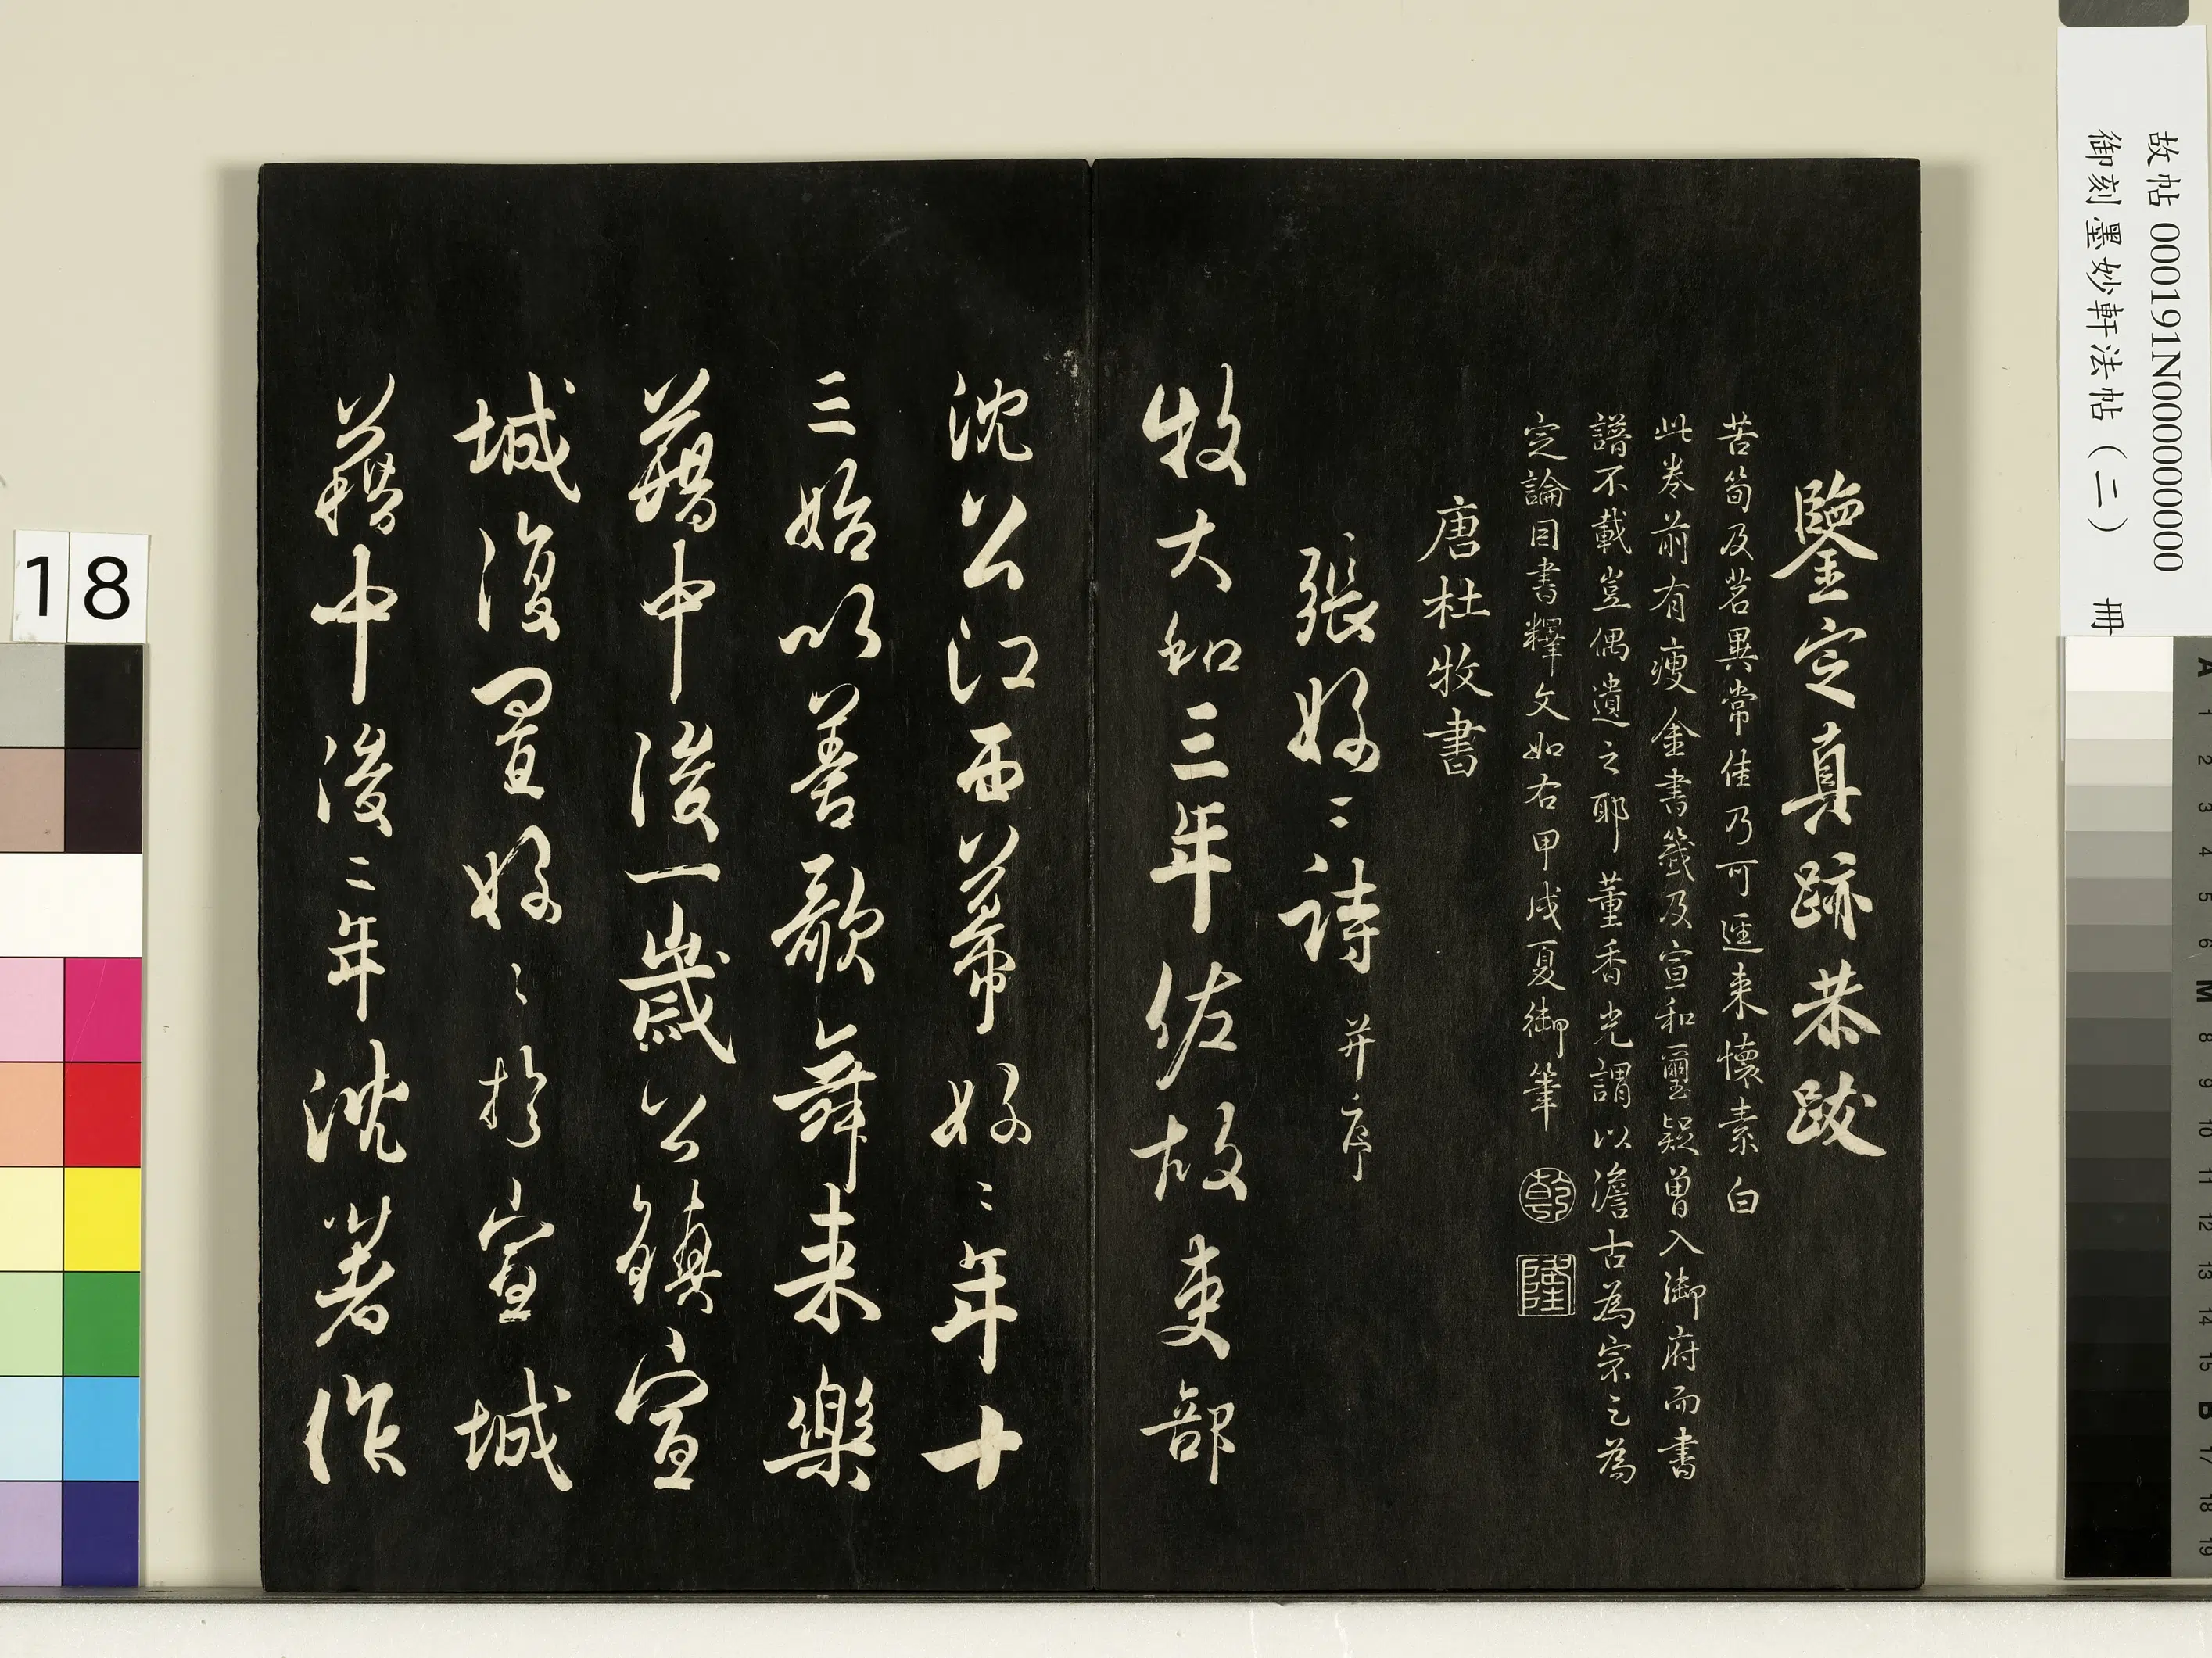 鑒定真跡恭跋
苦筍及茗異常佳乃可逕来懷素白
此卷前有瘦金書籤及宣和璽疑曾入御府而書
譜不載豈偶遺之耶董香光謂以澹古為宗之為
定論因書釋文如右甲戌夏御筆
乾
隆
唐杜牧書
張好二詩并序
牧大和三年佐故吏部
沈公江西幕好二年十
三始以善歌舞来樂
籍中後一歲公鎮宣
城復置好〻於宣城
籍中後二年沈著作
故帖 000191N000000000
御刻墨妙軒法帖(二) 冊
18
A 1 2 3 4 5 6 M 8 9 10 11 12 13 14 15 B 17 18 19